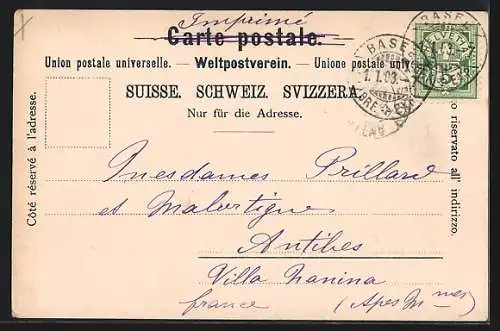 Imprimé
Carte postale.
Union postale universelle. — Weltpostverein. — Unione postale univ
SUISSE. SCHWEIZ. SVIZZERA
Nur für die Adresse.
Côté réservé à l'adresse.
o riservato all' indirizzo.
BASEL
HELVETIA
BASEL
1.V.03
Mesdames Prillard
et Malortigue
Antibes
Villa Nanina
france (Alpes Mmes)